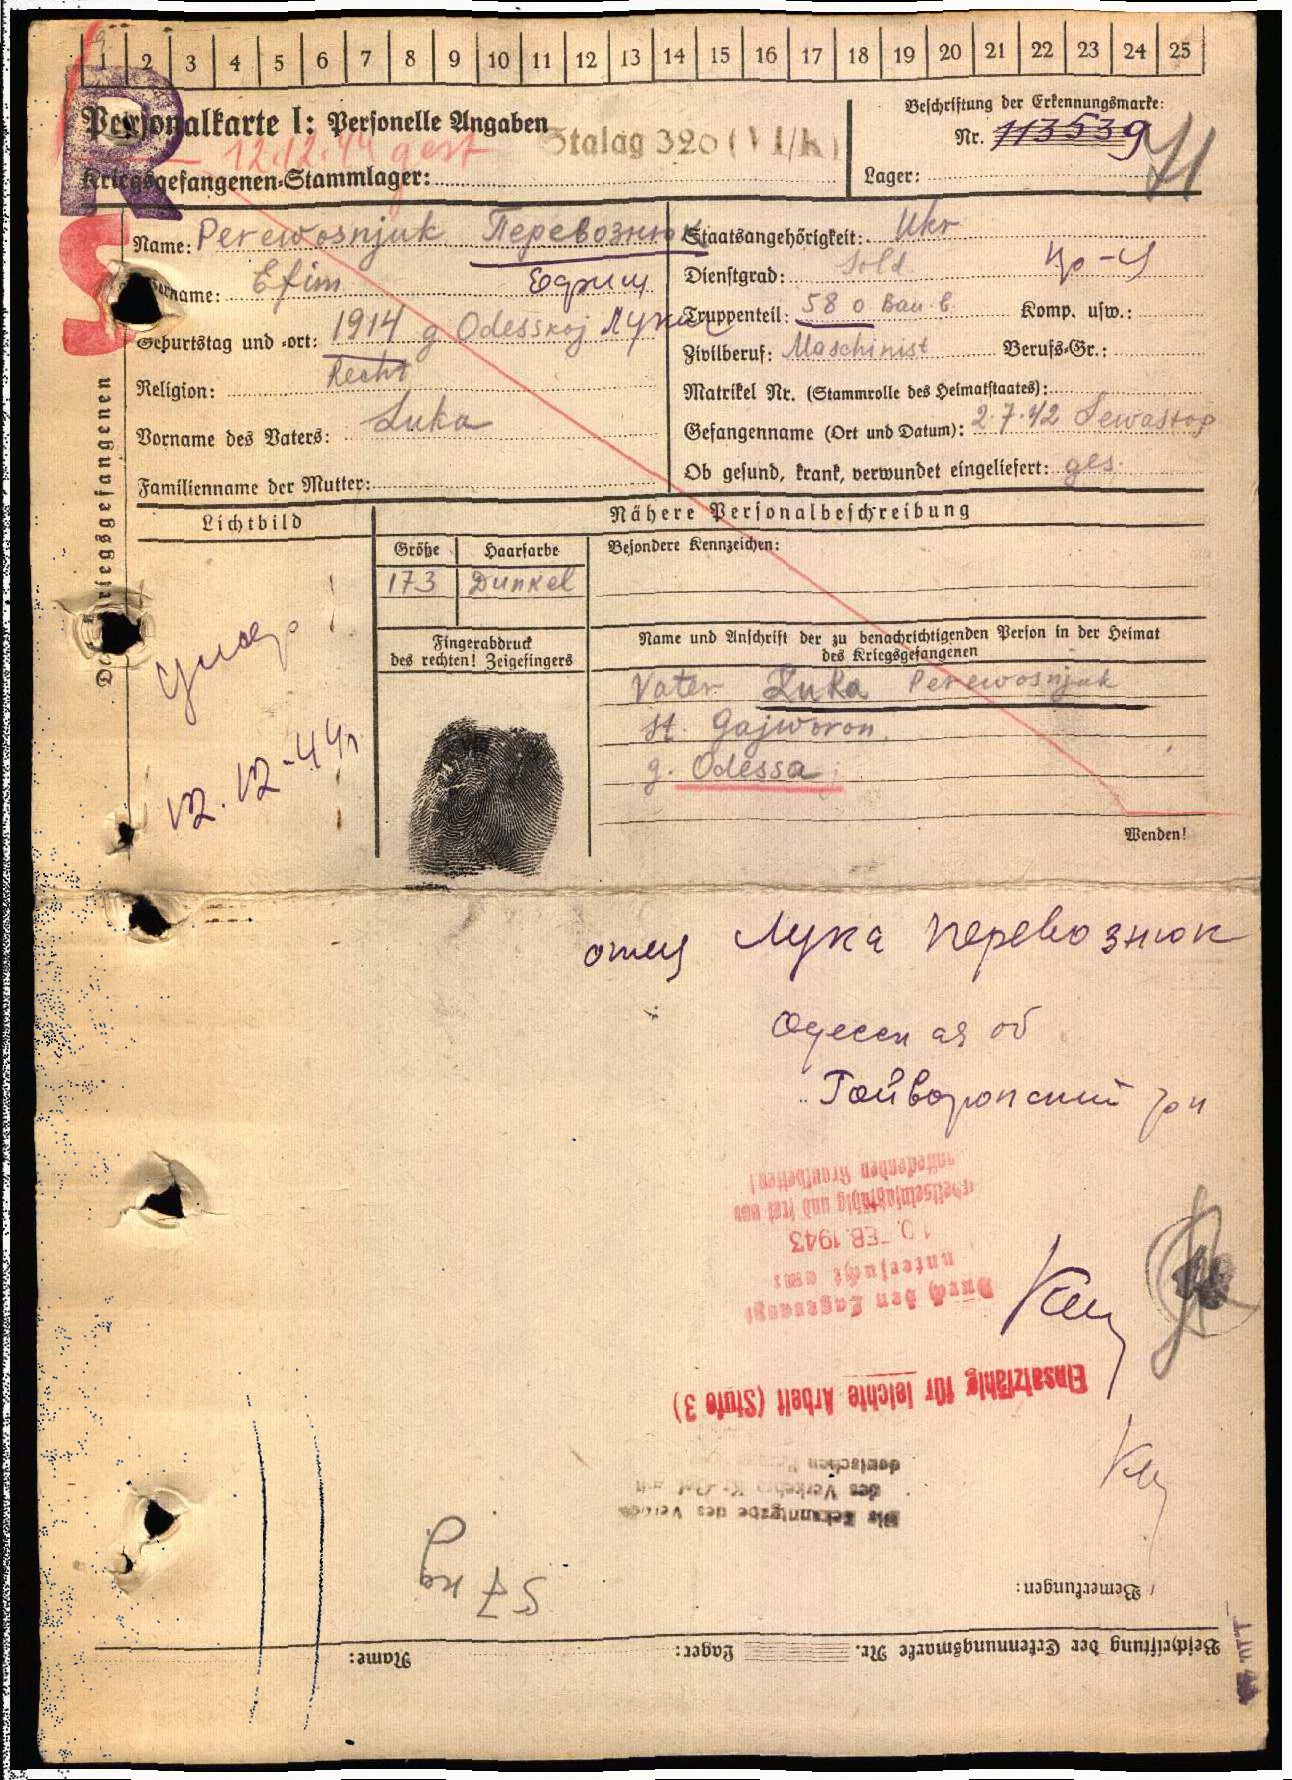 1 2 3 4 5 6 7 8 9 10 11 12 13 14 15 16 17 18 19 20 21 22 23 24 25
Personalkarte I: Personelle Angaben
Beschriftung der Erkennungsmarke:
Nr. 113539
Stalag 326 (VI/K)
12.12.44 gest
Kriegsgefangenen-Stammlager:
Lager:
R
S
Name: Perewosnjuk Перевознюк
Staatsangehörigkeit: Ukr
Vorname: Efim Ефим
Dienstgrad: Sold
Geburtstag und -ort: 1914 g Odesskoj
Truppenteil: 58 o Bau b. Komp. usw.:
Zivilberuf: Maschinist Berufs-Gr.:
Religion: Recht
Matrikel Nr. (Stammrolle des Heimatstaates):
Vorname des Vaters: Luka
Gefangenname (Ort und Datum): 2.7.42 Sewastop
Familienname der Mutter:
Ob gesund, krank, verwundet eingeliefert: ges.
Des Kriegsgefangenen
Lichtbild
Nähere Personalbeschreibung
Größe Haarfarbe
Besondere Kennzeichen:
173 Dunkel
Fingerabdruck
des rechten! Zeigefingers
Name und Anschrift der zu benachrichtigenden Person in der Heimat
des Kriegsgefangenen
Vater Luka Perewosnjuk
st. Gajworon
g. Odessa
умер
12.12-44г
Wenden!
отец Лука Перевознюк
Одесск ая об
Гайворонский р-н
Durch den Lagerarzt
untersucht am:
10. FEB. 1943
arbeitseinsatzfähig und frei von
ansteckenden Krankheiten!
Einsatzfähig für leichte Arbeit (Stufe 3)
Die Bekanntgabe des Verbots
des Verkehrs
deutschen
57 kg
Bemerkungen:
Beschriftung der Erkennungsmarke Nr. Lager: Name: